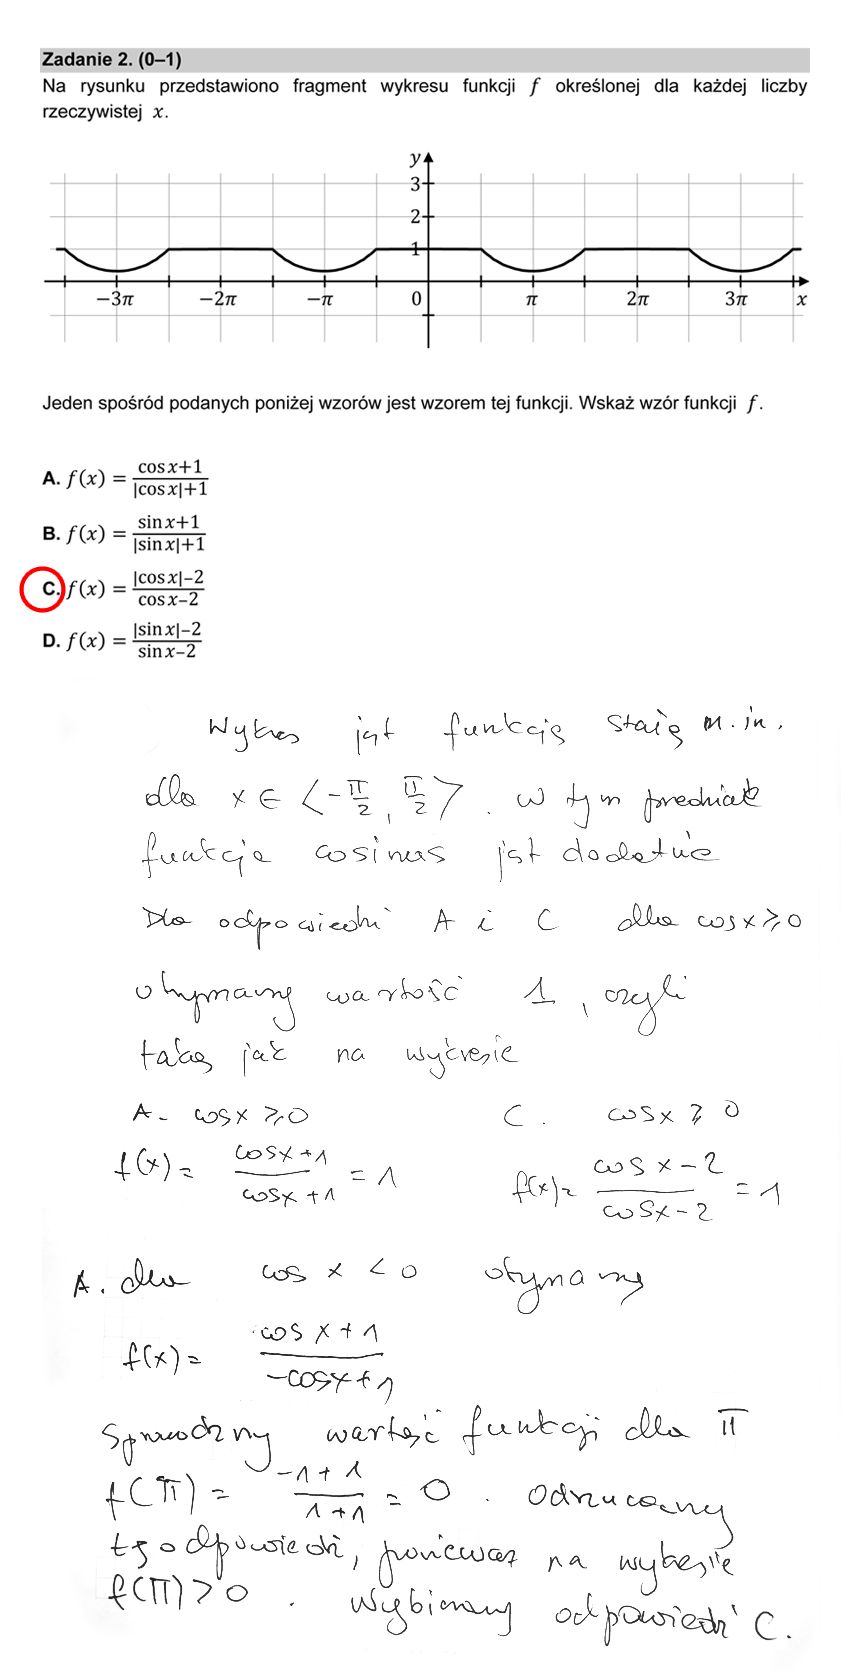 Zadanie 2. (0–1)
Na rysunku przedstawiono fragment wykresu funkcji f określonej dla każdej liczby
rzeczywistej x.
y
3
2
1
−3π −2π −π 0 π 2π 3π x
Jeden spośród podanych poniżej wzorów jest wzorem tej funkcji. Wskaż wzór funkcji f.
A. f(x) = (cos x+1)/(|cos x|+1)
B. f(x) = (sin x+1)/(|sin x|+1)
C. f(x) = (|cos x|−2)/(cos x−2)
D. f(x) = (|sin x|−2)/(sin x−2)
Wykres jest funkcją stałą m.in.
dla x ∈ <-π/2, π/2>. w tym przedziale
funkcja cosinus jest dodatnia
Dla odpowiedzi A i C dla cosx ⩾ 0
otrzymamy wartość 1, czyli
taką jak na wykresie
A. cosx ⩾ 0 C. cosx ⩾ 0
f(x) = (cosx+1)/(cosx+1) = 1 f(x) = (cosx-2)/(cosx-2) = 1
A. dla cos x < 0 otrzymamy
f(x) = (cosx+1)/(-cosx+1)
Sprawdzmy wartość funkcji dla π
f(π) = (-1+1)/(1+1) = 0. Odrzucamy
tę odpowiedź, ponieważ na wykresie
f(π)>0. Wybieramy odpowiedź C.